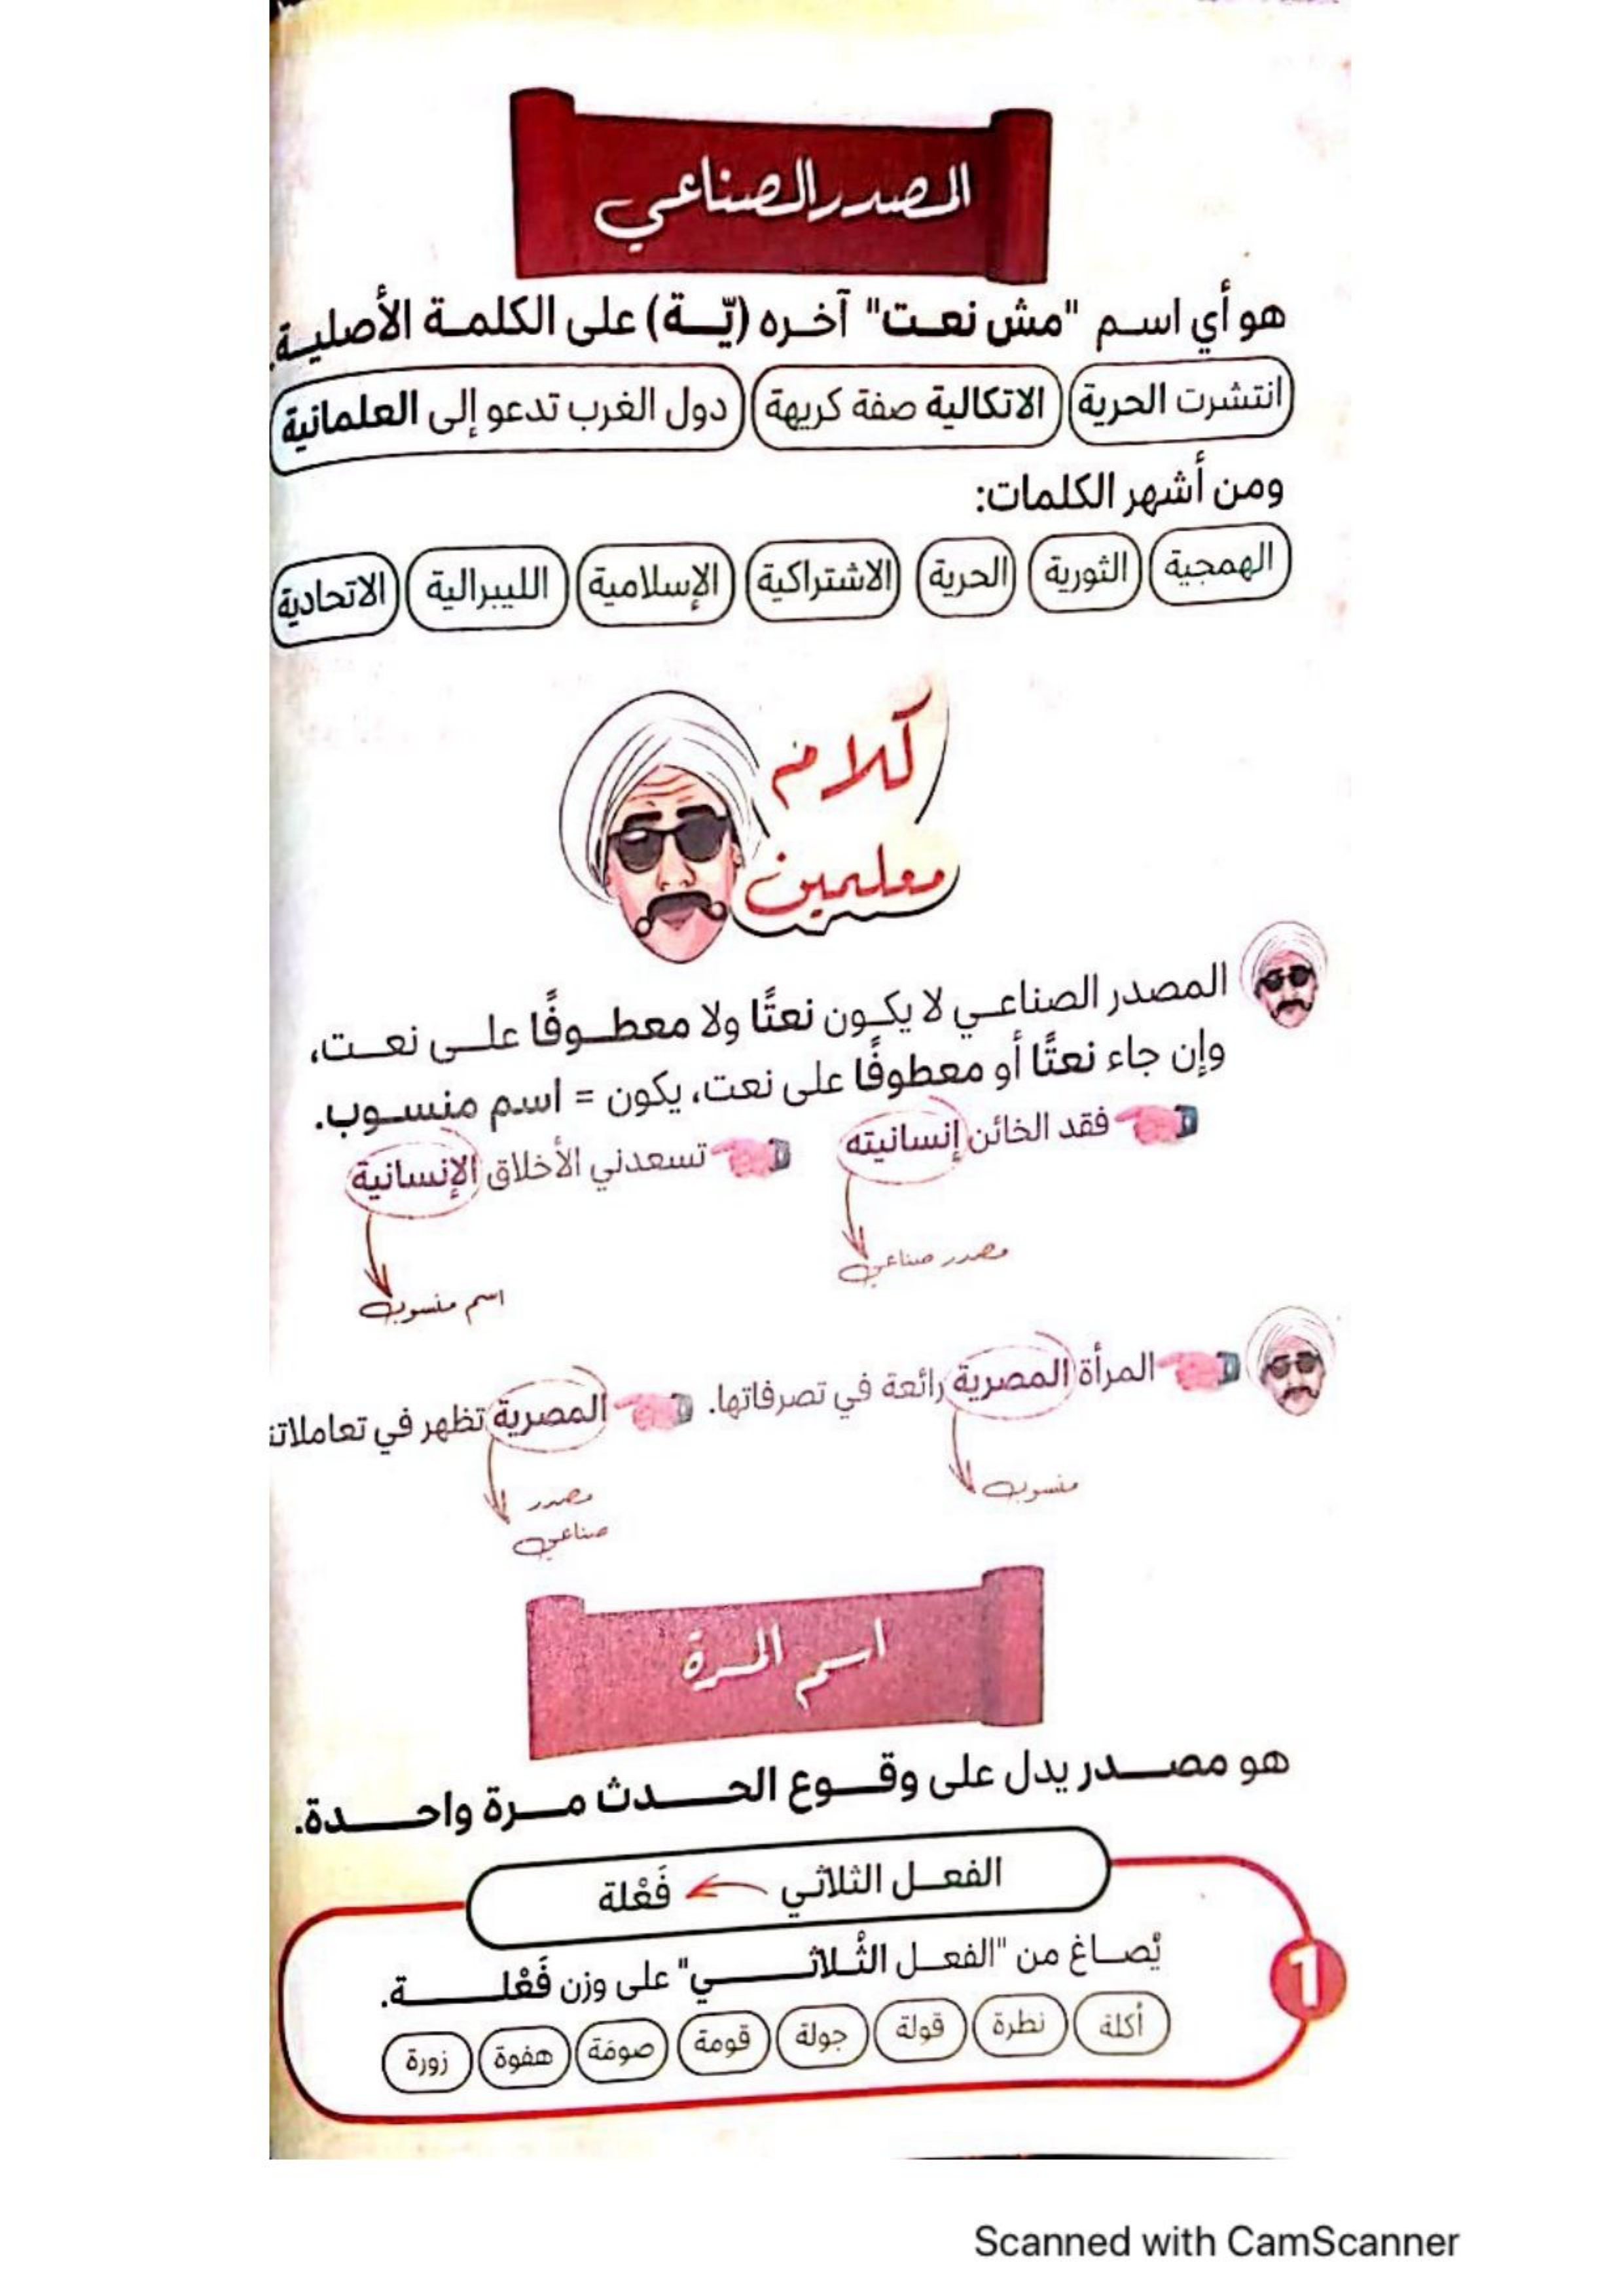 المصدر الصناعي
هو أي اسم "مش نعت" آخره (يّة) على الكلمة الأصلية.
انتشرت الحرية الاتكالية صفة كريهة دول الغرب تدعو إلى العلمانية
ومن أشهر الكلمات:
الهمجية الثورية الحرية الاشتراكية الإسلامية الليبرالية الاتحادية
كلام
معلمين
المصدر الصناعي لا يكون نعتًا ولا معطوفًا على نعت،
وإن جاء نعتًا أو معطوفًا على نعت، يكون = اسم منسوب.
فقد الخائن إنسانيته تسعدني الأخلاق الإنسانية
مصدر صناعي اسم منسوب
المرأة المصرية رائعة في تصرفاتها. المصرية تظهر في
منسوب مصدر
صناعي
اسم المرة
هو مصدر يدل على وقوع الحدث مرة واحدة.
الفعل الثلاثي فَعْلة
1
يُصاغ من "الفعل الثُلاثي" على وزن فَعْلة.
أكلة نظرة قولة جولة قومة صومة هفوة زورة
Scanned with CamScanner